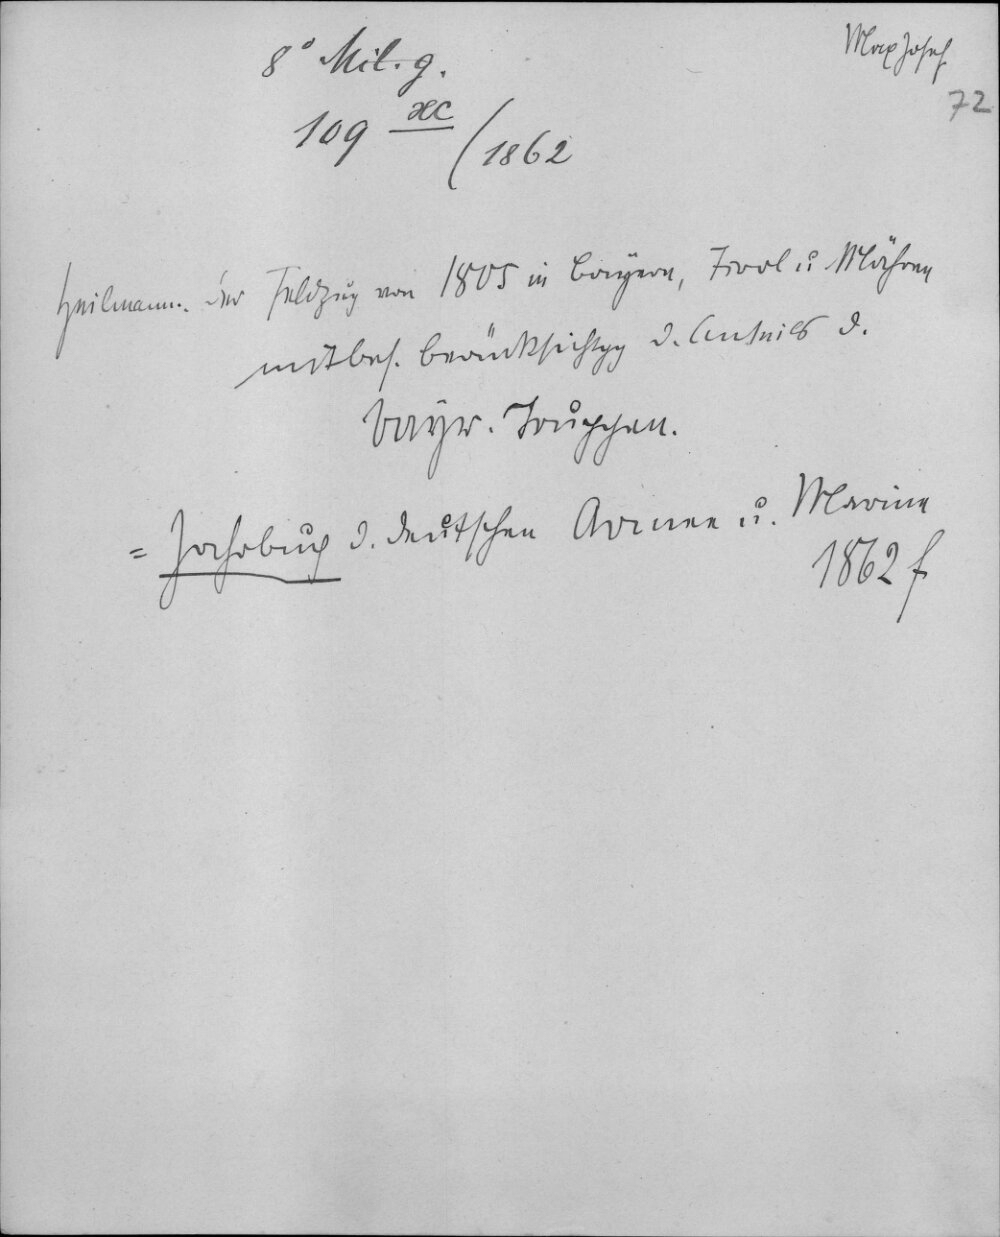 8° Mil. g.
Max Josef
72
109 xc / 1862
Heilmann. Der Feldzug von 1805 in Bayern, Tirol u Mähren
mit bes. Berücksichtgg d. Antheils d.
bayr. Truppen.
= Jahrbuch d. deutschen Armee u. Marine
1862 f